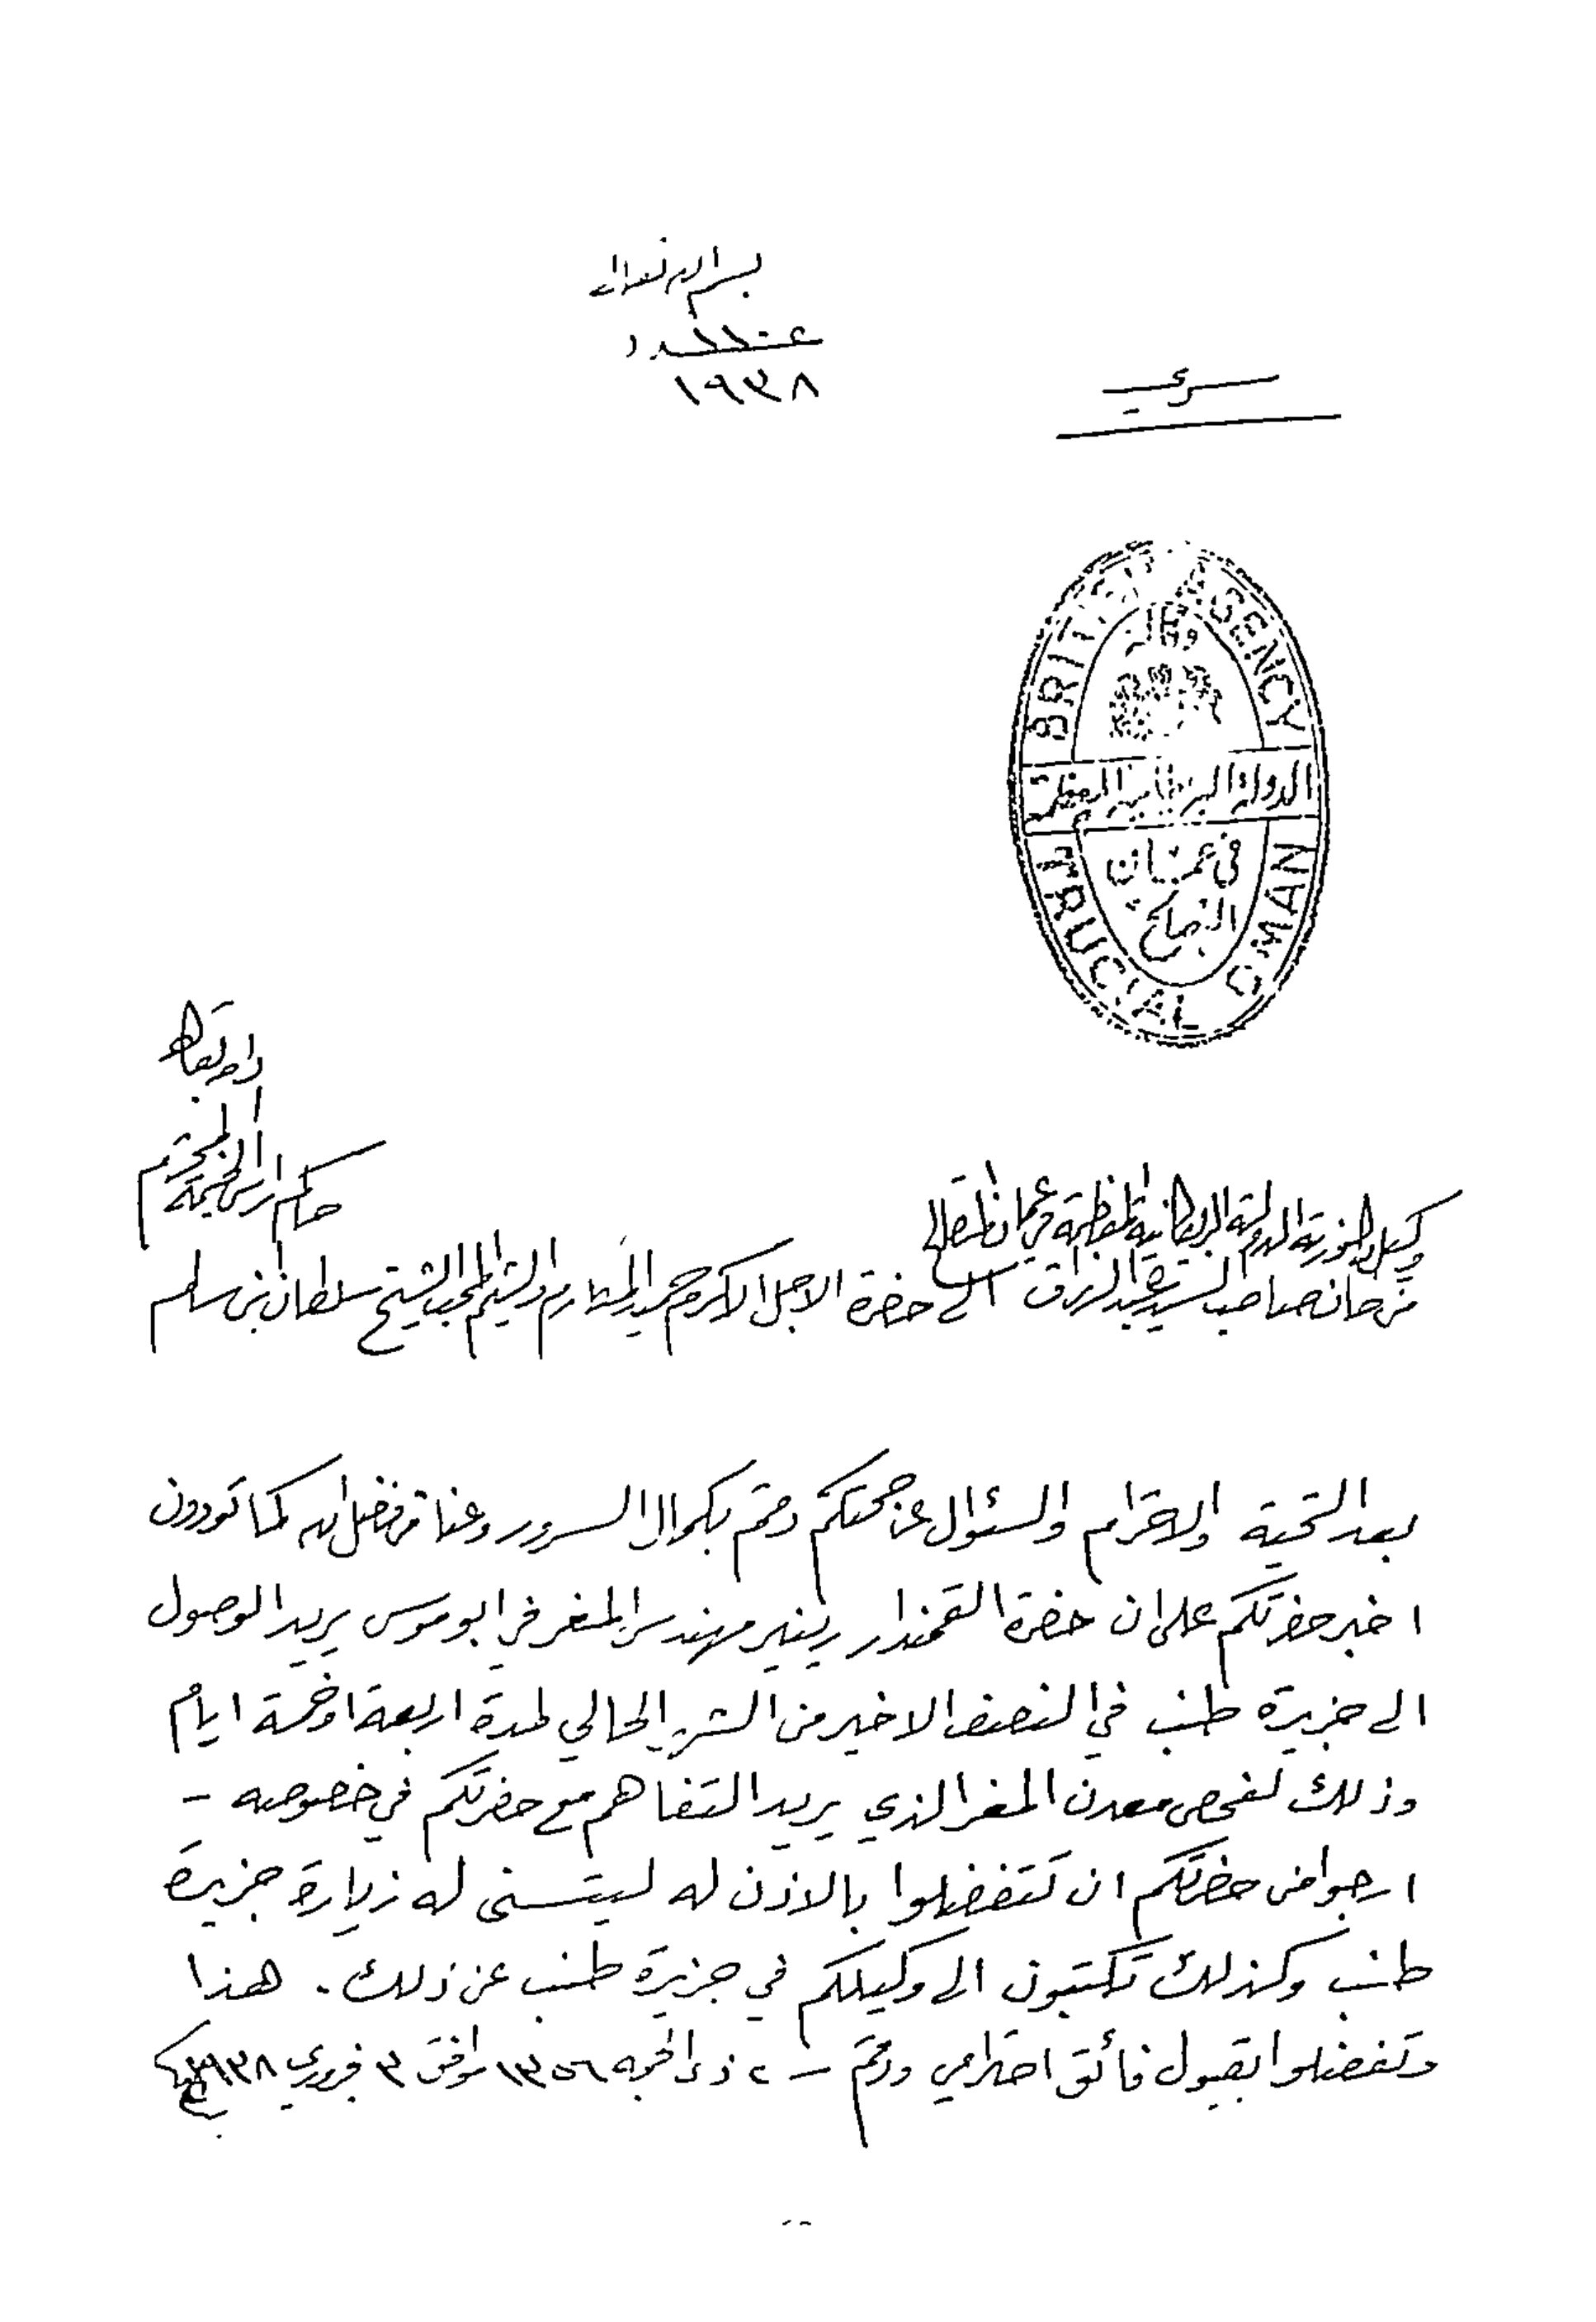 بسم الله تعالى
عدد
١٩٣٨
سري
BRITISH AGENCY
وكالة
الدولة البريطانية المعظمة
في عمان
المتصالح
TRUCIAL OMAN
دام بقاه
المحترم
حاكم راس الخيمة
وكيل الدولة البريطانية المعظمة في عمان المتصالح
من خانصاحب السيد عبدالرزاق الى حضرة الاجل الاكرم حميد المكارم والشيم المحب الشيخ سلطان بن سالم
بعد التحية والاحترام والسئوال عن صحتكم دمتم بكمال السرور وعنا من فضل الله كما تودون
اخبر حضرتكم على ان حضرة القمندار رينير مهندس المغر في ابو موسى يريد الوصول
الى جزيرة طنب في النصف الاخير من الشهر الحالي لمدة اربعة او خمسة ايام
وذلك لفحص معدن المغر الذي يريد التفاهم مع حضرتكم في خصوصه -
ارجوا من حضرتكم ان تتفضلوا بالاذن له ليتسنى له زيارة جزيرة
طنب وكذلك تكتبون الى وكيلكم في جزيرة طنب عن ذلك . هذا
وتفضلوا بقبول فائق احترامي ودمتم - ٢ ذي الحجه ١٣٥٦ موافق ٣ فبروري ١٩٣٨